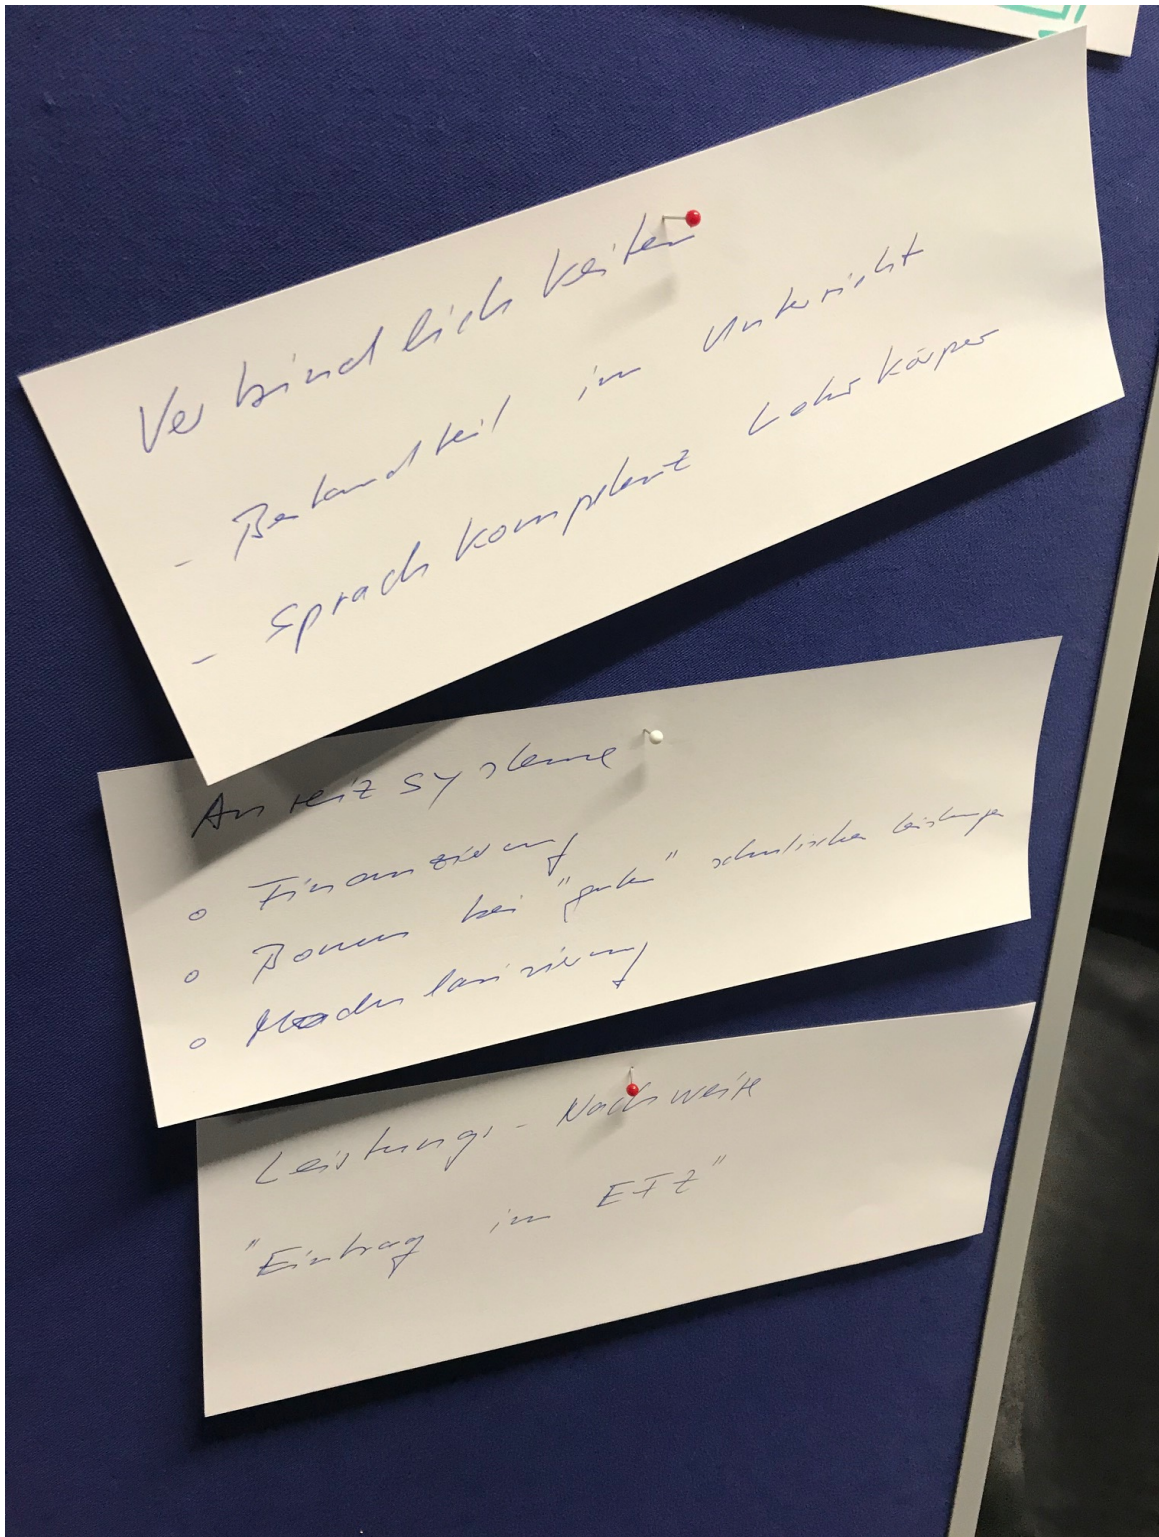 Verbindlichkeiten
- Bestandteil im Unterricht
- Sprachkompetenz Lehrkörper
Anreizsysteme
o Finanzierung
o Bonus bei "guten" schulischen Leistungen
o Modularisierung
Leistungs-Nachweise
"Eintrag im EFZ"